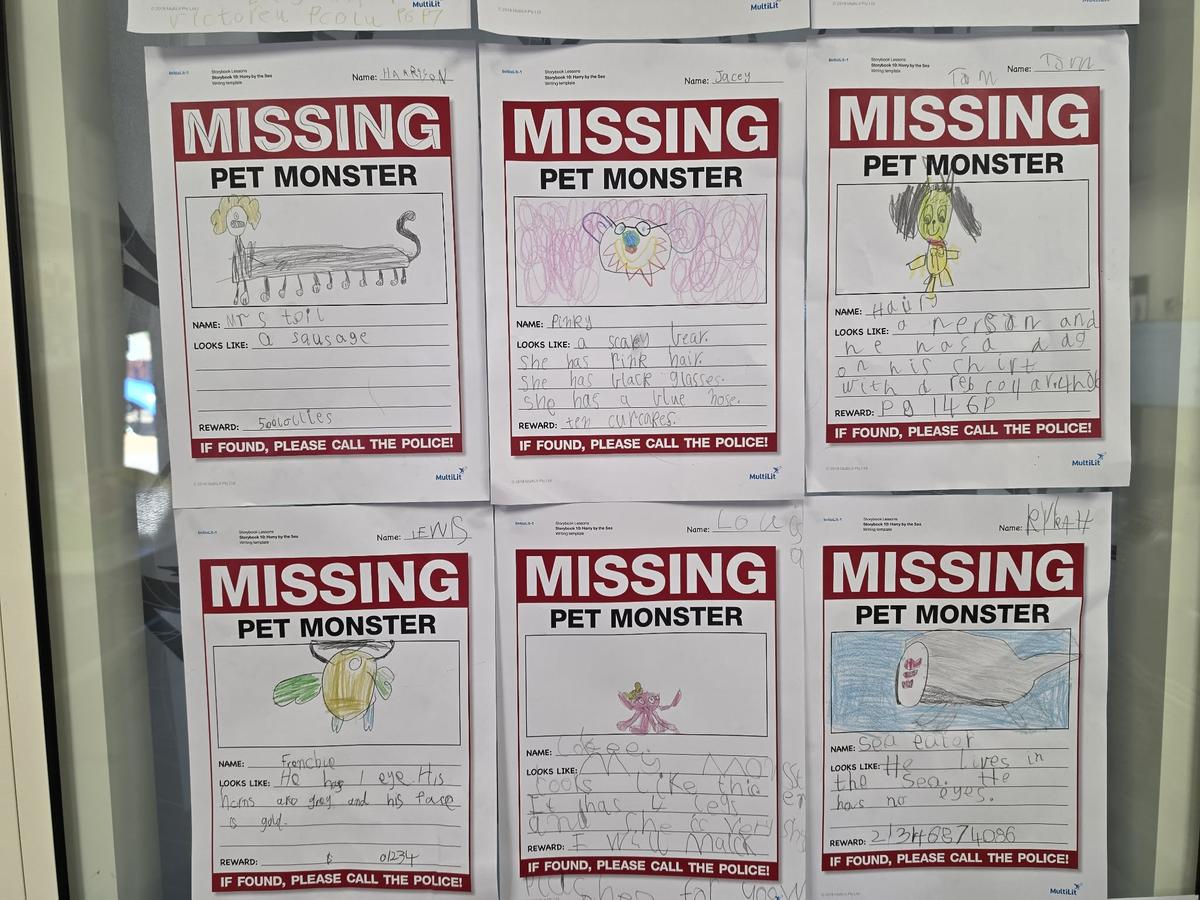 victoreu
MultiLit
© 2019 MultiLit Pty Ltd
MultiLit
© 2019 MultiLit Pty Ltd
MultiLit
InitiaLit–1
Storybook Lessons
Storybook 10: Harry by the Sea
Writing template
Name: HAARISON
MISSING
PET MONSTER
NAME: Mr S toil
LOOKS LIKE: a sausage
REWARD: 500lollies
IF FOUND, PLEASE CALL THE POLICE!
© 2019 MultiLit Pty Ltd
MultiLit
InitiaLit–1
Storybook Lessons
Storybook 10: Harry by the Sea
Writing template
Name: Jacey
MISSING
PET MONSTER
NAME: Pinky
LOOKS LIKE: a scary bear.
she has Pink hair.
she has black glasses.
she has a blue nose.
REWARD: ten cupcakes.
IF FOUND, PLEASE CALL THE POLICE!
© 2019 MultiLit Pty Ltd
MultiLit
InitiaLit–1
Storybook Lessons
Storybook 10: Harry by the Sea
Writing template
Name: Tom
Tom
MISSING
PET MONSTER
NAME: Hairy
LOOKS LIKE: a person and
he has a dog
on his shirt
with a red
REWARD: P0146P
IF FOUND, PLEASE CALL THE POLICE!
© 2019 MultiLit Pty Ltd
MultiLit
InitiaLit–1
Storybook Lessons
Storybook 10: Harry by the Sea
Writing template
Name: LEWIS
MISSING
PET MONSTER
NAME: Frenchie
LOOKS LIKE: He has 1 eye. His
horns are grey and his face
is gold.
REWARD: $ 01234
IF FOUND, PLEASE CALL THE POLICE!
Storybook Lessons
Storybook 10: Harry by the Sea
Writing template
Name: Lou
MISSING
PET MONSTER
NAME:
LOOKS LIKE: My Monster
looks like this
It has 4 legs
and she is very shy
REWARD: I will
IF FOUND, PLEASE CALL THE POLICE!
for you
InitiaLit–1
Storybook Lessons
Storybook 10: Harry by the Sea
Writing template
Name:
MISSING
PET MONSTER
NAME: sea eater
LOOKS LIKE: He lives in
the sea. He
has no eyes.
REWARD: 21346874086
IF FOUND, PLEASE CALL THE POLICE!
© 2019 MultiLit Pty Ltd
MultiLit